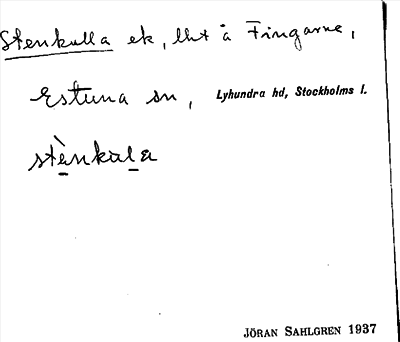 Stenkulla ek, lht å Fingarne,
Estuna sn, Lyhundra hd, Stockholms l.
stènkula
JÖRAN SAHLGREN 1937